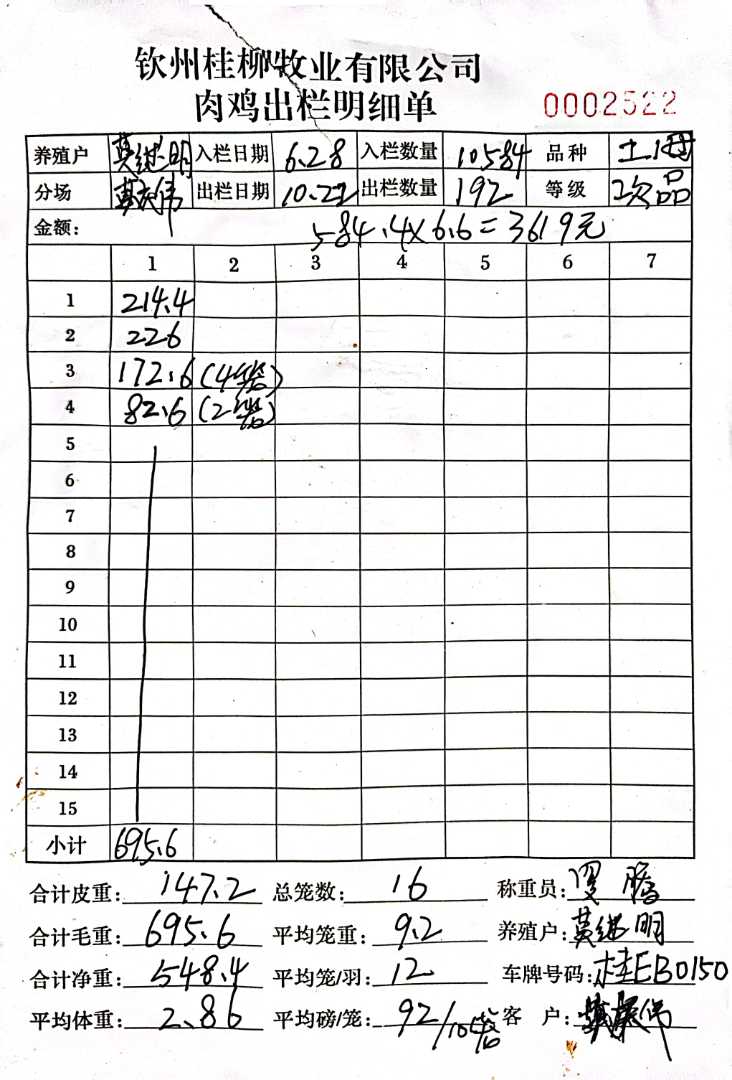 钦州桂柳牧业有限公司
肉鸡出栏明细单 0002522
养殖户 莫继明 入栏日期 6.28 入栏数量 10584 品种 土2母
分场 出栏日期 10.22 出栏数量 192 等级 次品
金额: 584.4×6.6=3619元
1 2 3 4 5 6 7
1 214.4
2 226
3 172.6(4笼)
4 82.6(2笼)
5
6
7
8
9
10
11
12
13
14
15
小计 695.6
合计皮重: 147.2 总笼数: 16 称重员: 腾
合计毛重: 695.6 平均笼重: 9.2 养殖户: 莫继明
合计净重: 548.4 平均笼/羽: 12 车牌号码: 桂EB0150
平均体重: 2.86 平均磅/笼: 92/10笼 客 户: 伟